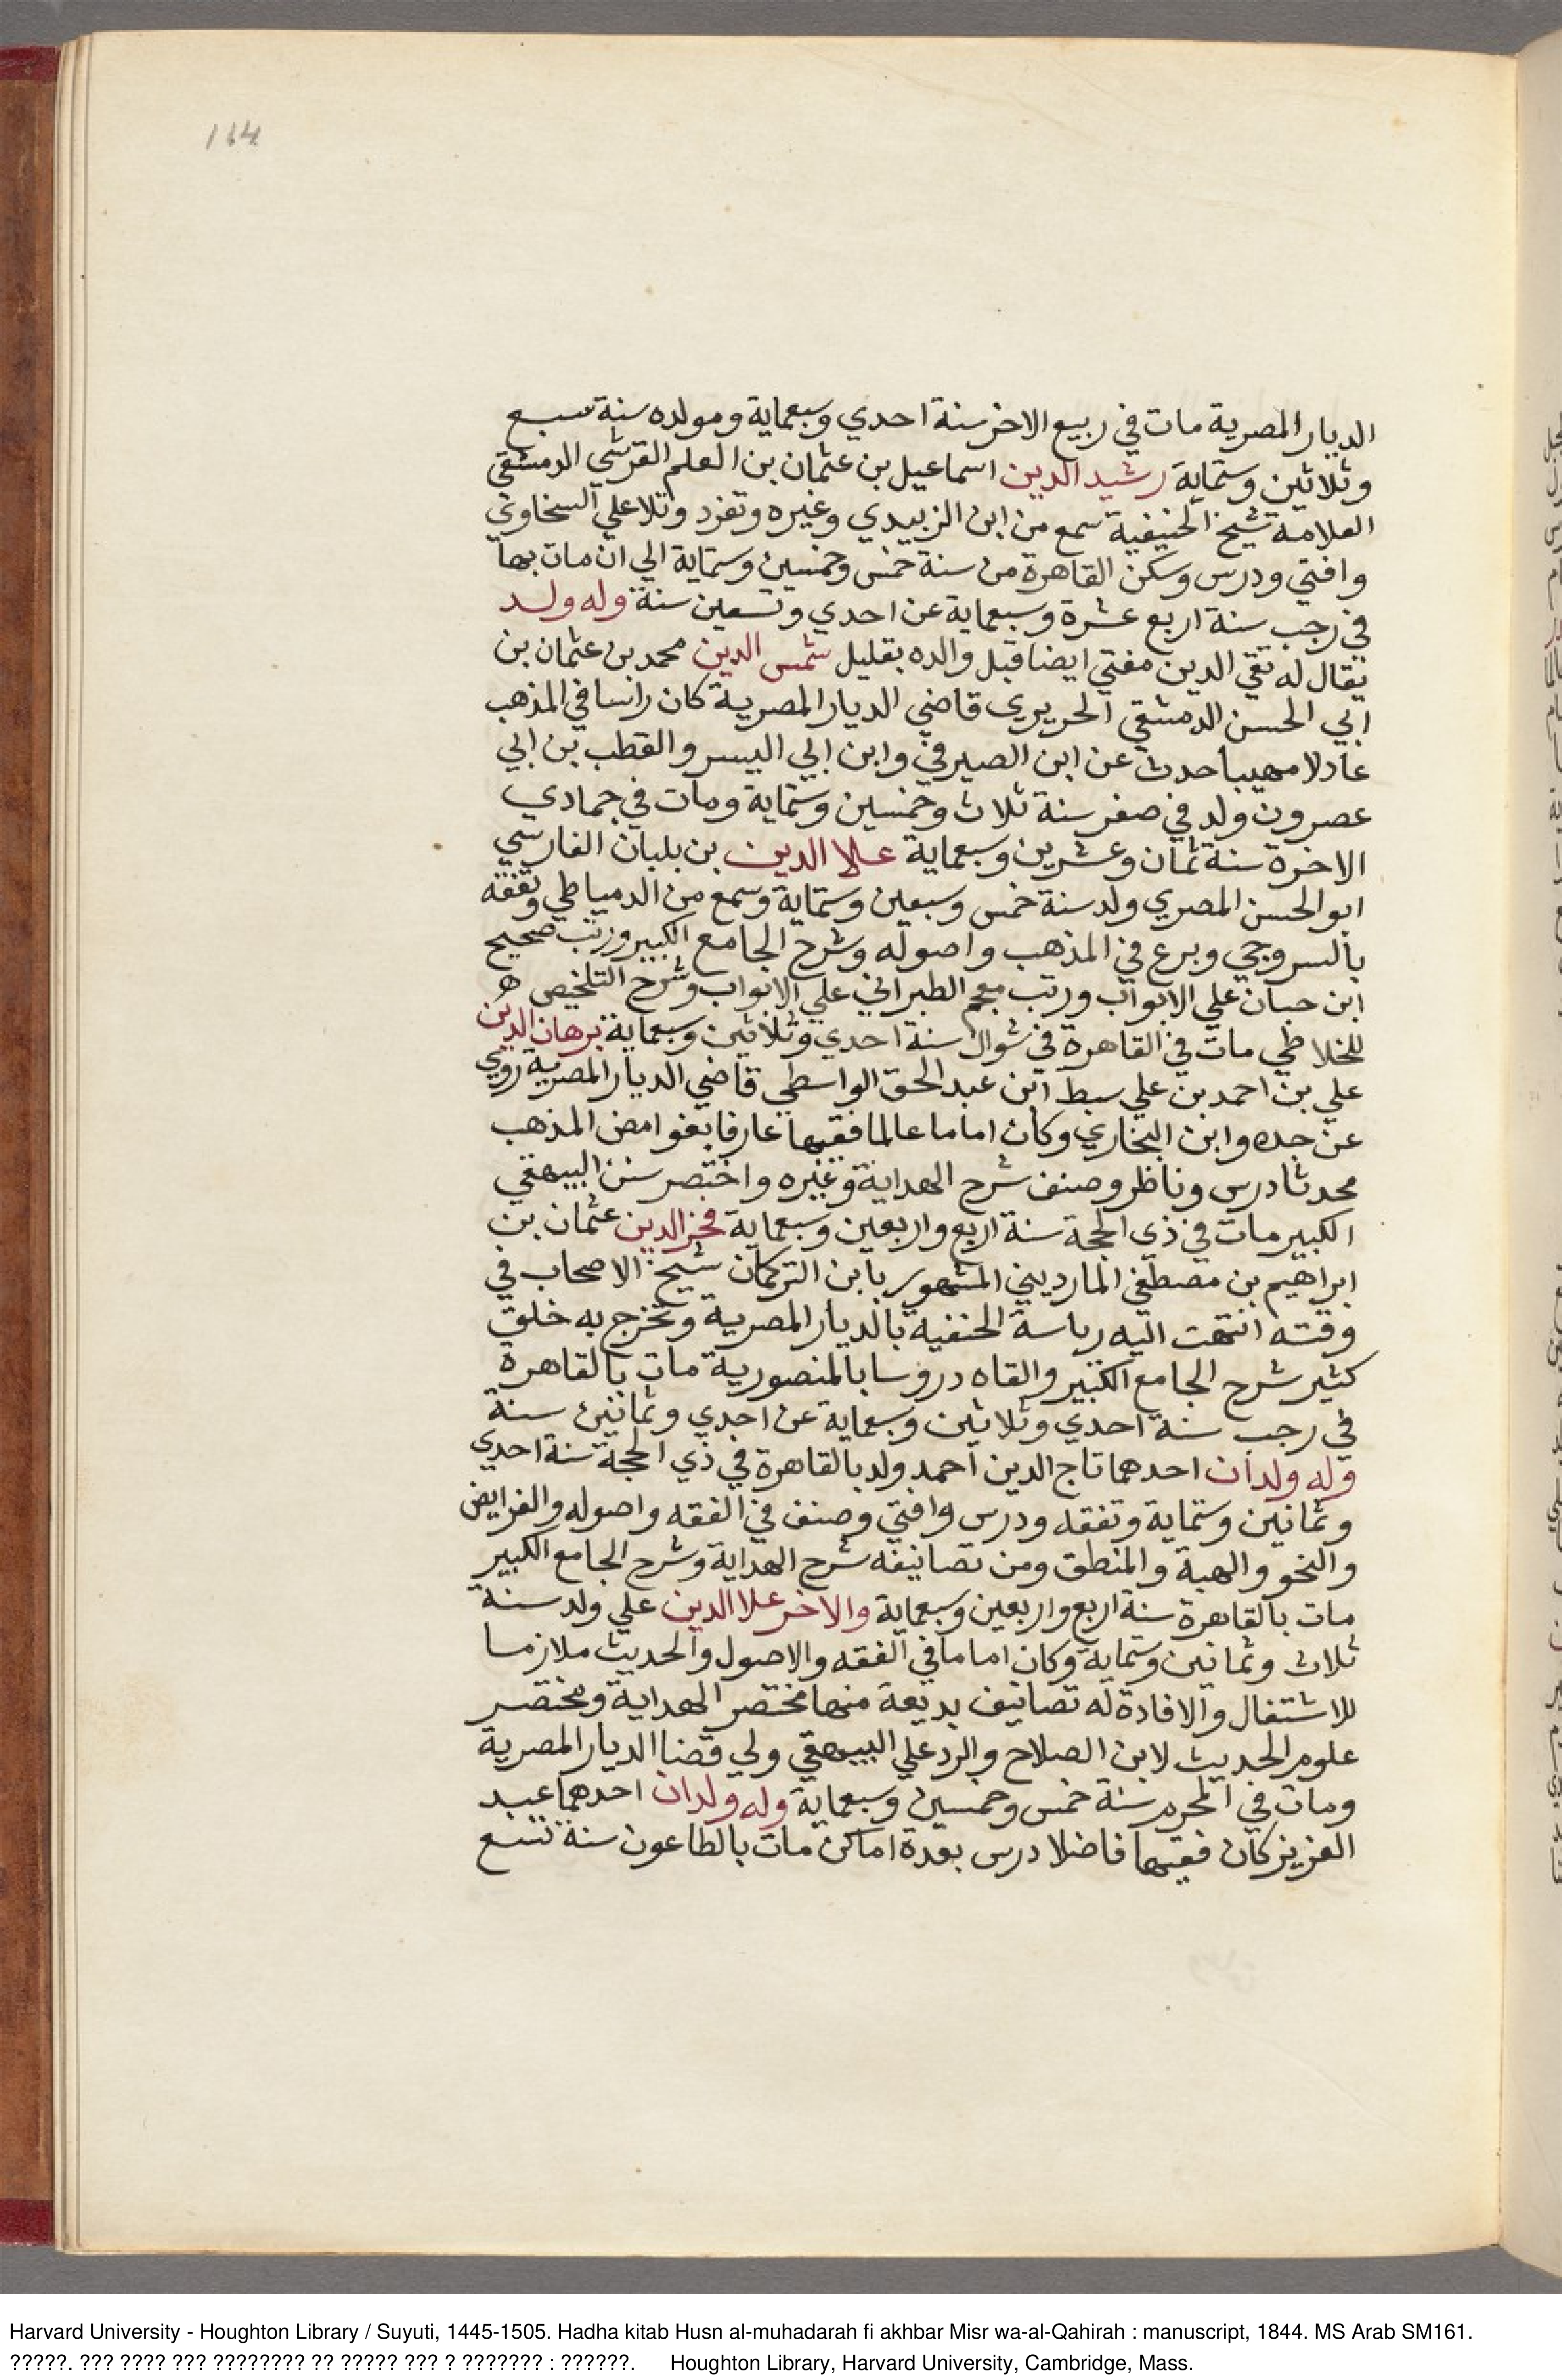 164
الديار المصرية مات في ربيع الاخر سنة احدي وسبعماية ومولده سنة سبع
وثلاثين وستماية رشيد الدين اسماعيل بن عثمان بن العلم القرشي الدمشقي
العلامة شيخ الحنيفية سمع من ابن الزبيدي وغيره وتفرد وتلا علي السخاوي
وافتي ودرس وسكن القاهرة من سنة خمس وخمسين وستماية الي ان مات بها
في رجب سنة اربع عشرة وسبعماية عن احدي وتسعين سنة وله ولد
يقال له تقي الدين مفتي ايضا قبل والده بقليل شمس الدين محمد بن عثمان بن
ابي الحسن الدمشقي الحريري قاضي الديار المصرية كان راسا في المذهب
عادلا مهيبا حدث عن ابن الصيرفي وابن ابي اليسر والقطب بن ابي
عصرون ولد في صفر سنة ثلاث وخمسين وستماية ومات في جمادي
الاخرة سنة ثمان وعشرين وسبعماية علا الدين بن بلبان الفارسي
ابو الحسن المصري ولد سنة خمس وسبعين وستماية وسمع من الدمياطي وتفقه
بالسروجي وبرع في المذهب واصوله وشرح الجامع الكبير ورتب صحيح
ابن حبان علي الابواب ورتب معجم الطبراني علي الابواب وشرح التلخيص
للخلاطي مات في القاهرة في شوال سنة احدي وثلاثين وسبعماية برهان الدين
علي بن احمد بن علي سبط ابن عبد الحق الواسطي قاضي الديار المصرية روي
عن جده وابن البخاري وكان اماما عالما فقيها عارفا بغوامض المذهب
محدثا درس وناظر وصنف شرح الهداية وغيره واختصر سنن البيهقي
الكبير مات في ذي الحجة سنة اربع واربعين وسبعماية فخر الدين عثمان بن
ابراهيم بن مصطفي المارديني المشهور بابن التركمان شيخ الاصحاب في
وقته انتهت اليه رياسة الحنفية بالديار المصرية وتخرج به خلق
كثير شرح الجامع الكبير والقاه دروسا بالمنصورية مات بالقاهرة
في رجب سنة احدي وثلاثين وسبعماية عن احدي وثمانين سنة
وله ولدان احدهما تاج الدين احمد ولد بالقاهرة في ذي الحجة سنة احدي
وثمانين وستماية وتفقه ودرس وافتي وصنف في الفقه واصوله والفرايض
والنحو والهية والمنطق ومن تصانيفه شرح الهداية وشرح الجامع الكبير
مات بالقاهرة سنة اربع واربعين وسبعماية والاخر علا الدين علي ولد سنة
ثلاث وثمانين وستماية وكان اماما في الفقه والاصول والحديث ملازما
للاشتغال والافادة له تصانيف بديعة منها مختصر الهداية ومختصر
علوم الحديث لابن الصلاح والرد علي البيهقي ولي قضا الديار المصرية
ومات في المحرم سنة خمس وخمسين وسبعماية وله ولدان احدهما عبد
العزيز كان فقيها فاضلا درس بعدة اماكن مات بالطاعون سنة تسع
Harvard University - Houghton Library / Suyuti, 1445-1505. Hadha kitab Husn al-muhadarah fi akhbar Misr wa-al-Qahirah : manuscript, 1844. MS Arab SM161.
?????. ??? ???? ??? ???????? ?? ????? ??? ? ??????? : ??????. Houghton Library, Harvard University, Cambridge, Mass.